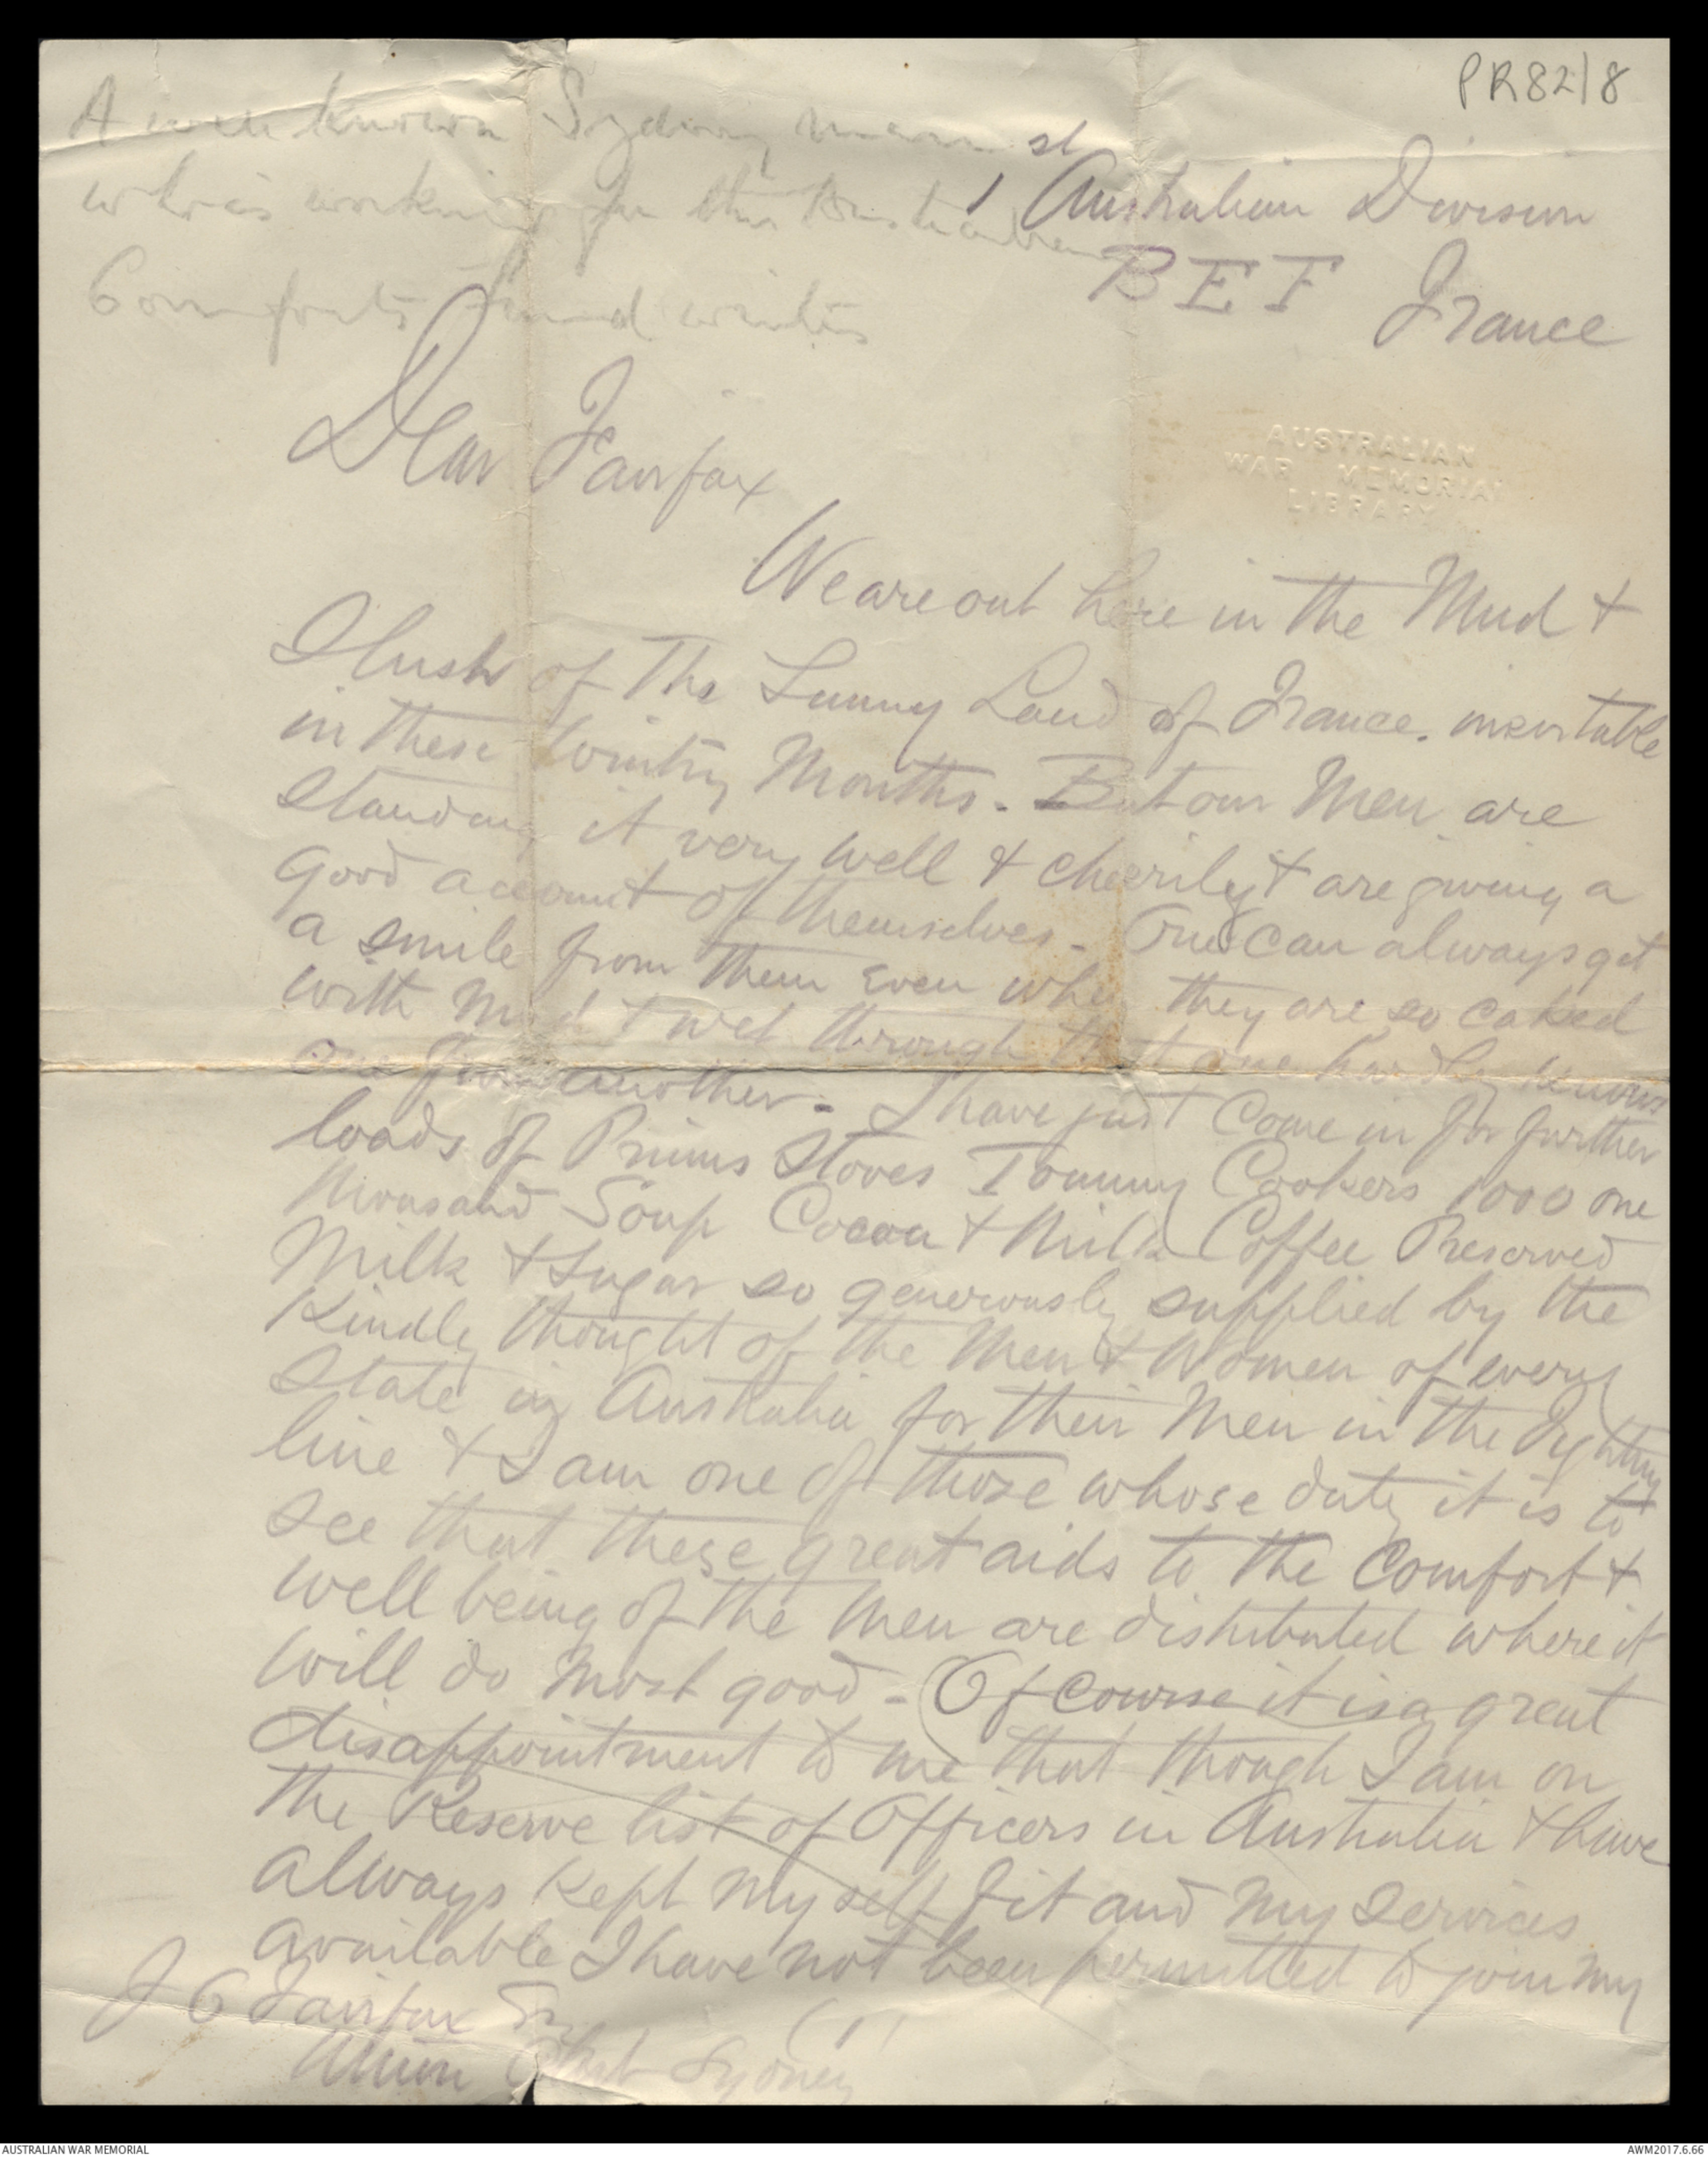 PR82/8
A well known Sydney man
who is working for the Australian
Comforts Fund writes
1st Australian Division
BEF France
AUSTRALIAN
WAR MEMORIAL
LIBRARY
Dear Fairfax
We are out here in the Mud &
Slush of The Sunny Land of France. inevitable
in these Wintry Months. But our Men are
standing it very well & cheerily & are giving a
good account of themselves. One can always get
a smile from them Even when they are so caked
with Mud & wet through that one hardly knows
one from another. I have just Come in for further
loads of Primus Stoves Tommy Cookers 1000 one
thousand Soup Cocoa & Milk Coffee Preserved
Milk & Sugar so generously supplied by the
Kindly thought of the Men & Women of every
State in Australia for their Men in the fighting
line & I am one of those whose duty it is to
see that these great aids to the Comfort &
well being of the Men are distributed where it
will do most good - (Of course it is a great
disappointment to me that though I am on
the Reserve list of Officers in Australia & have
always kept myself fit and my services
available I have not been permitted to join my
J O Fairfax Esq
Union Club Sydney
(1)
AUSTRALIAN WAR MEMORIAL
AWM2017.6.66